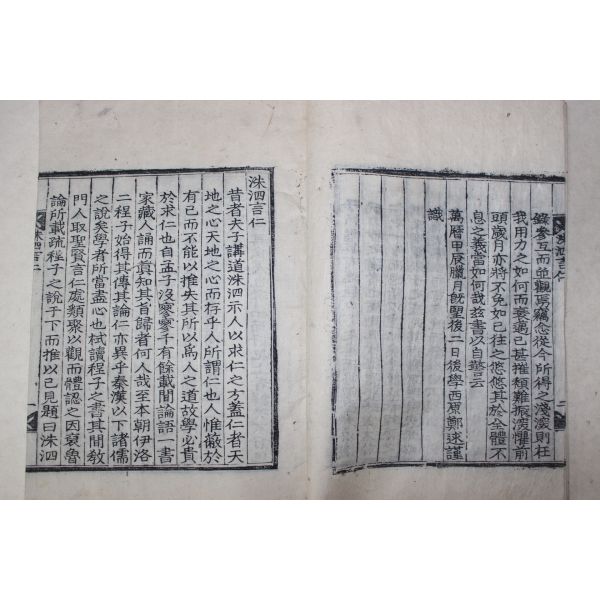 錄參互而並觀焉竊念從今所得之淺深則在
我用力之如何而衰邁已甚摧頹難振深懼前
頭歲月亦將不免如已往之悠悠其於全體不
息之義當如何哉玆書以自警云
萬曆甲辰臘月旣望後二日後學西原鄭逑謹
識
洙泗言仁
昔者夫子講道洙泗示人以求仁之方蓋仁者天
地之心天地之心而存乎人所謂仁也人惟蔽於
有己而不能以推失其所以爲人之道故學必貴
於求仁也自孟子沒寥寥千有餘載間論語一書
家藏人誦而眞知其旨歸者何人哉至本朝伊洛
二程子始得其傳其論仁亦異乎秦漢以下諸儒
之說矣學者所當盡心也栻讀程子之書其間敎
門人取聖賢言仁處類聚以觀而體認之因裒魯
論所載疏程子之說于下而推以己見題曰洙泗
洙泗言仁